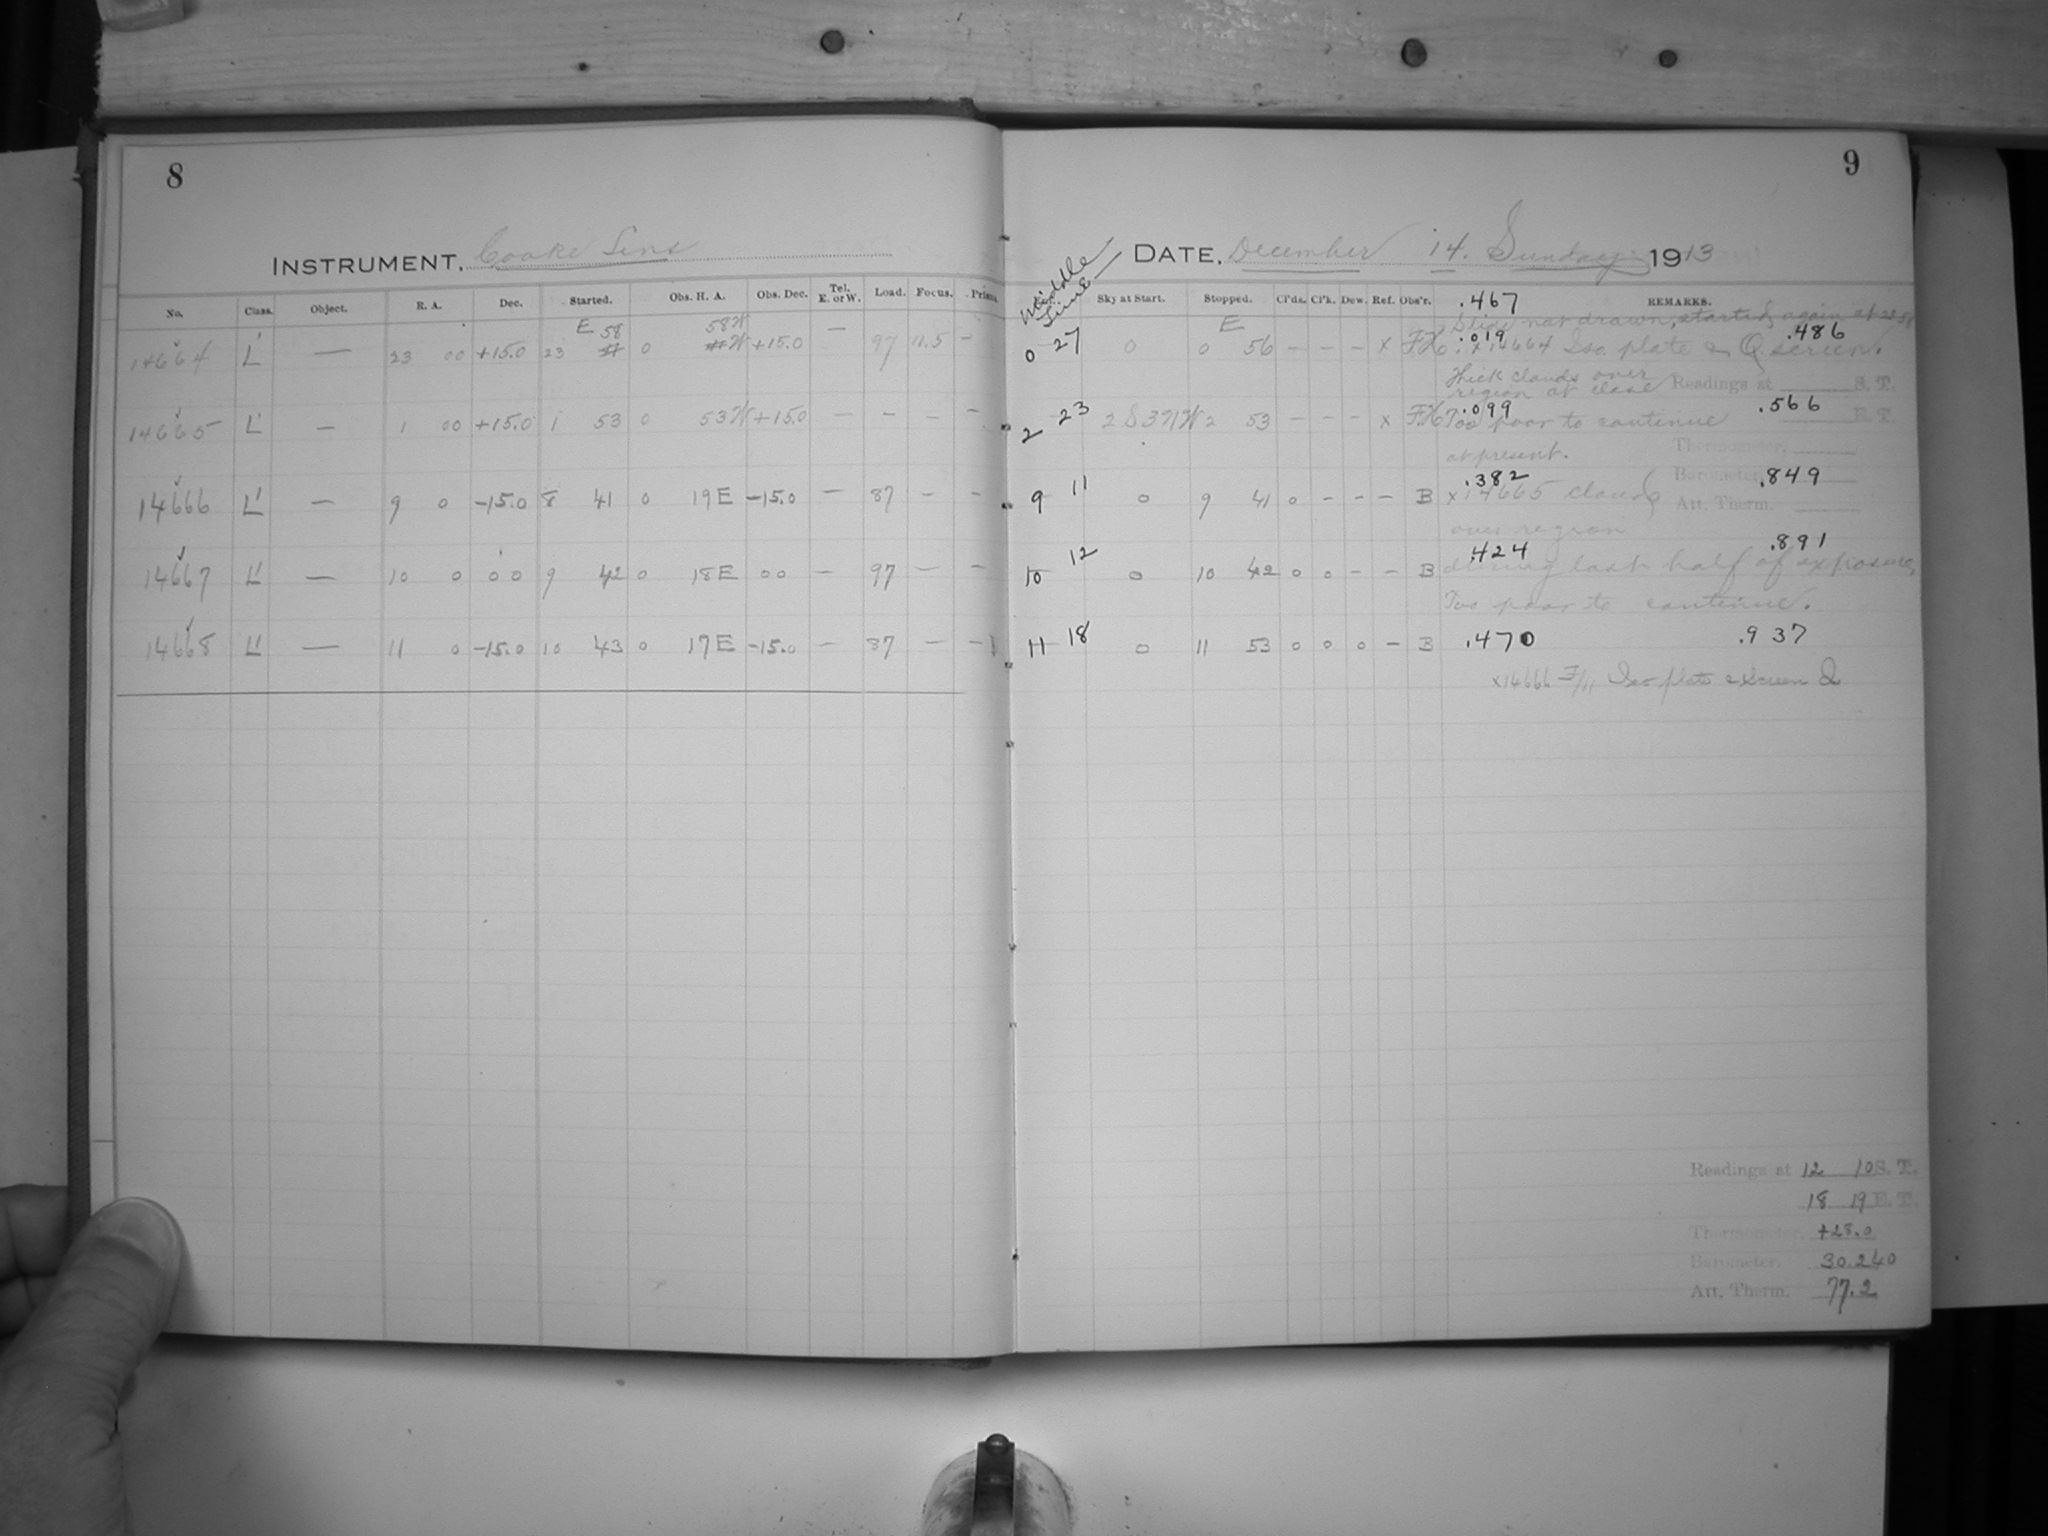 8
INSTRUMENT. Cooke Lens
No. Class. Object. R. A. Dec. Started. Obs. H. A. Obs. Dec. Tel. E. or W. Load. Focus. Prism.
E 58 58W
14664 L' — 23 00 +15.0 23 0 W +15.0 — 97 11.5 -
14665 L' — 1 00 +15.0 1 53 0 53W +15.0 — - - -
14666 L' — 9 0 -15.0 8 41 0 19E -15.0 — 87 - -
14667 L' — 10 0 00 9 42 0 18E 00 — 97 - -
14668 L' — 11 0 -15.0 10 43 0 17E -15.0 - 87 - -
9
DATE. December 14. Sunday 1913
Middle Time
Sky at Start. Stopped. Cl'ds. Cl'k. Dew. Ref. Obs'r. REMARKS.
.467
Slide not drawn, started again at 23 58
E
0 27 0 0 56 - - - x .019 .486
x14664 Iso. plate & Q screen.
Thick clouds over
region at close
Readings at S. T.
2 23 2 53 - - - x .099 .566
Too poor to continue E. T.
at present. Thermometer.
Barometer.
9 11 0 9 41 0 - - - B .382 .849
x14665 clouds Att. Therm.
over region
10 12 0 10 42 0 0 - - B .424 .891
during last half of exposure
Too poor to continue.
11 18 0 11 53 0 0 0 - B .470 .937
x14666 F/11 Iso plate & Screen Q
Readings at 12 10 S. T.
18 19 E. T.
Thermometer. +28.0
Barometer. 30.240
Att. Therm. 77.2